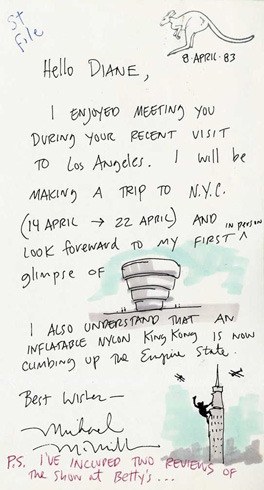 St
File
8·APRIL·83
Hello DIANE,
I ENJOYED MEETING YOU
DURING YOUR RECENT VISIT
TO Los ANGELES. I will be
MAKING A TRIP TO N.Y.C.
(14 APRIL → 22 APRIL) AND in person
LOOK foreward TO MY FIRST ^
glimpse OF
I ALSO UNDERSTAND THAT AN
INFLATABLE NYLON KING KONG IS NOW
CLIMBING UP the Empire State.
Best Wishes —
Michael
McMill
P.S. I'VE INCLUDED TWO REVIEWS OF
the Show at Betty's...